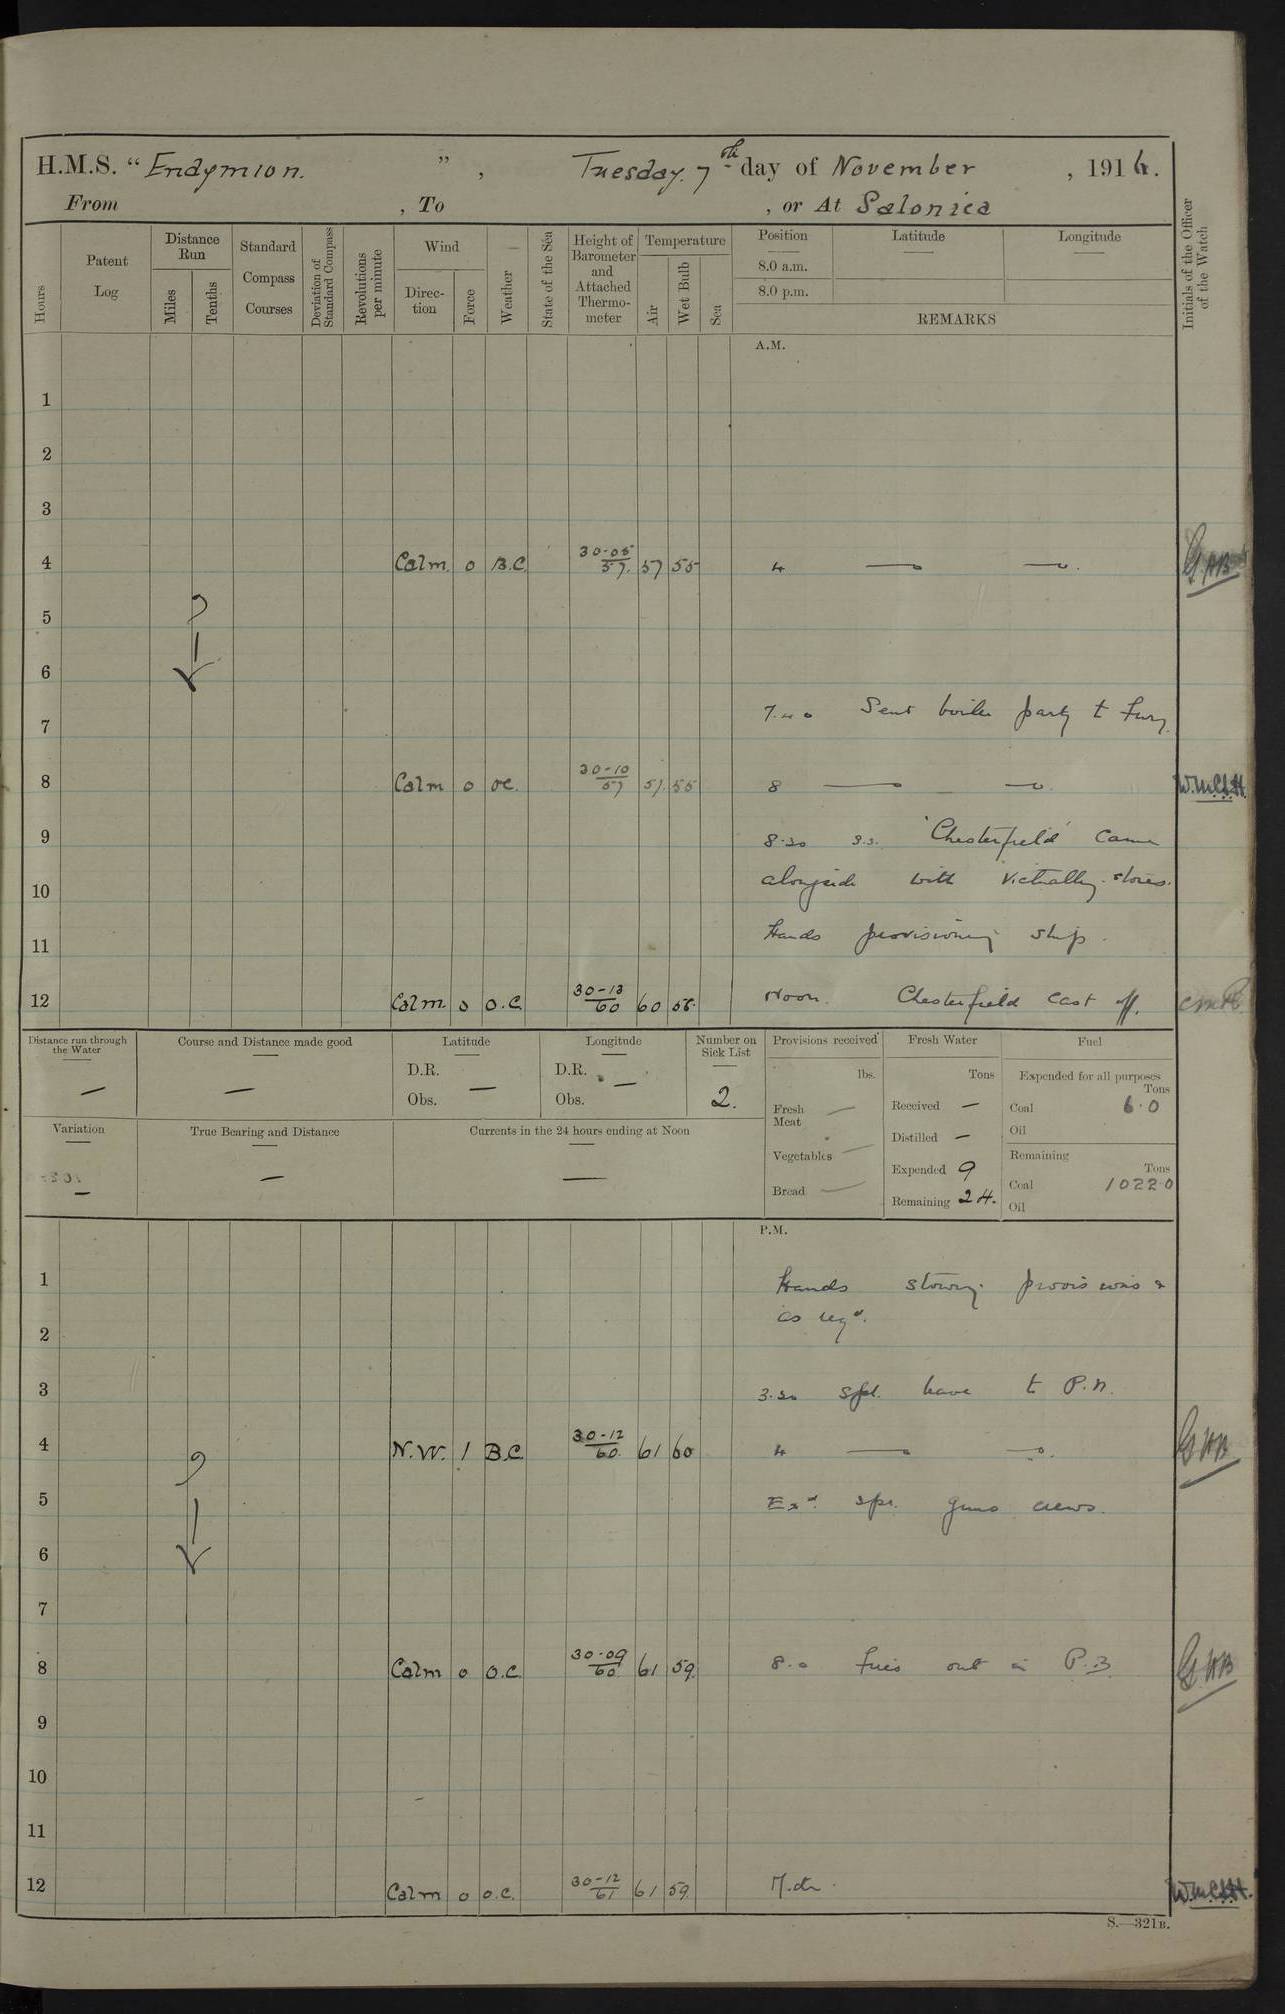 H.M.S. “Endymion.”, Tuesday. 7th day of November, 1916.
From , To , or At Salonica
Hours
Patent Log
Distance Run
Miles
Tenths
Standard Compass Courses
Deviation of Standard Compass
Revolutions per minute
Wind
Direction
Force
Weather
State of the Sea
Height of Barometer and Attached Thermometer
Temperature
Air
Wet Bulb
Sea
Position Latitude Longitude
8.0 a.m.
8.0 p.m.
REMARKS
Initials of the Officer of the Watch
A.M.
1
2
3
4 Calm. 0 B.C. 30-05 57. 57 55 4
5
6
7.40 Sent boiler party to Fury.
7
8 Calm 0 OC. 30-10 57 57. 55 8
9 8.30 s.s. 'Chesterfield' came
10 alongside with Victuallg. stores.
11 Hands provisioning ship.
12 Calm. 0 O.C. 30-13 60 60 Noon. Chesterfield cast off.
Distance run through the Water
Course and Distance made good
Latitude
D.R. —
Obs.
Longitude
D.R. —
Obs.
Number on Sick List
2.
Provisions received
lbs.
Fresh Meat —
Vegetables —
Bread —
Fresh Water
Tons
Received —
Distilled —
Expended 9
Remaining 24.
Fuel
Expended for all purposes
Tons
Coal 6.0
Oil
Remaining
Tons
Coal 1022.0
Oil
Variation
True Bearing and Distance
Currents in the 24 hours ending at Noon
P.M.
1 Hands stowing provisions &
2 as reqd.
3 3.30 Spl. leave to P.N.
4 N.W. 1 B.C. 30-12 60. 61 60 4 G.W.B
5 Exd. spr. guns crews.
6
7
8 Calm 0 O.C. 30-09 60 61 59. 8.0 Fires out in P.B. G.W.B
9
10
11
12 Calm 0 O.C. 30-12 61 61 59. M.dt.
S.—321B.